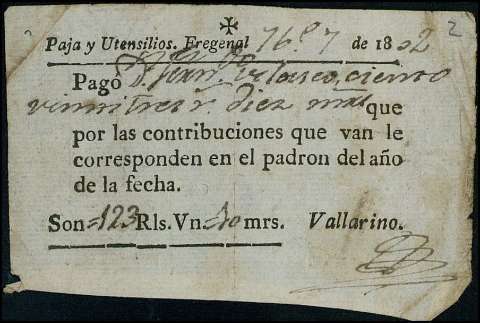 2
Paja y Utensilios. Fregenal 7 de 1832
Pagó D. Juan Velasco, ciento
veintitres r. diez mrs que
por las contribuciones que van le
corresponden en el padron del año
de la fecha.
Son=123 Rls. Vn. 10 mrs. Vallarino.